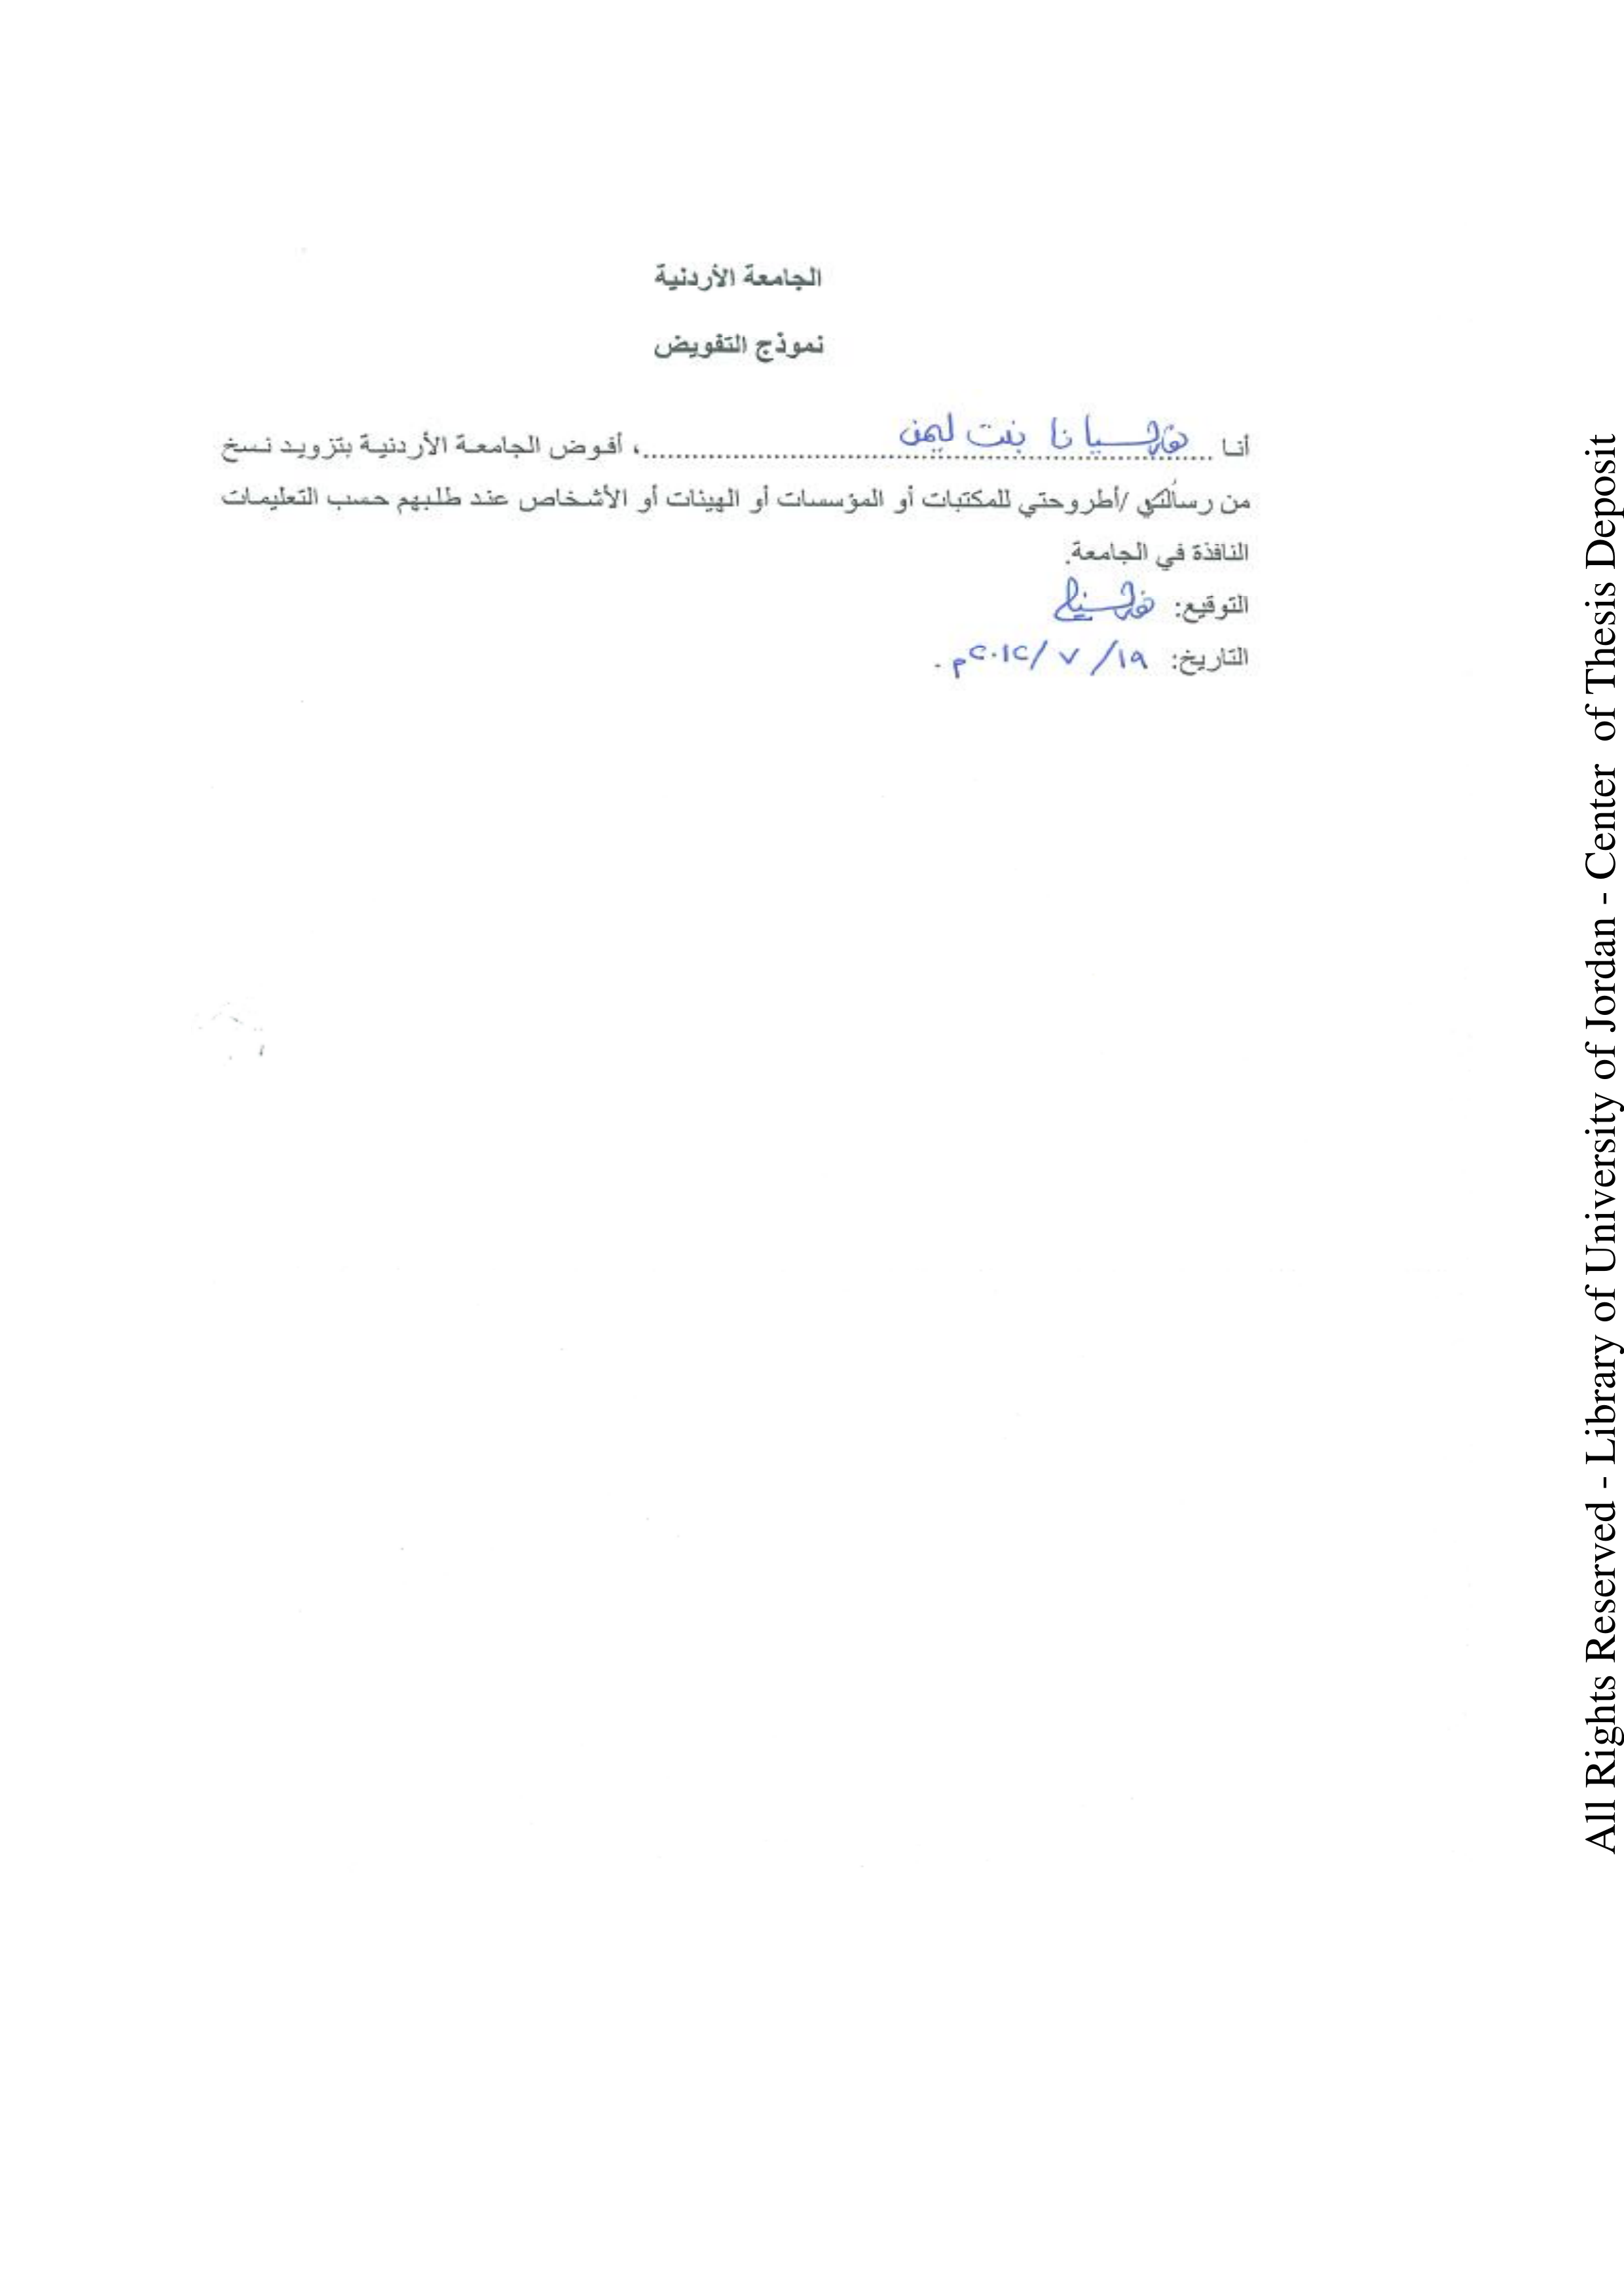 الجامعة الأردنية
نموذج التفويض
أنا بنت ليمن ........، أفوض الجامعة الأردنية بتزويد نسخ
من رسالتي /أطروحتي للمكتبات أو المؤسسات أو الهيئات أو الأشخاص عند طلبهم حسب التعليمات
النافذة في الجامعة.
التوقيع:
التاريخ: ١٩/ ٧ /٢٠١٢م .
All Rights Reserved - Library of University of Jordan - Center of Thesis Deposit